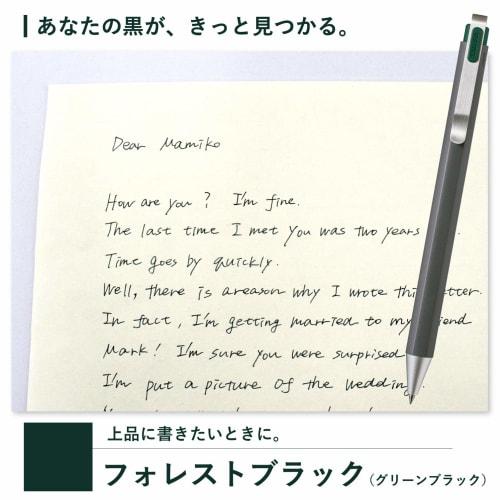 あなたの黒が、きっと見つかる。
Dear Mamiko
How are you? I'm fine.
The last time I met you was two years
Time goes by quickly.
Well, there is areason why I wrote this etter.
In fact, I'm getting married to my iend
Mark! I'm sure you were surprised
I'm put a picture of the wedding.
上品に書きたいときに。
フォレストブラック(グリーンブラック)